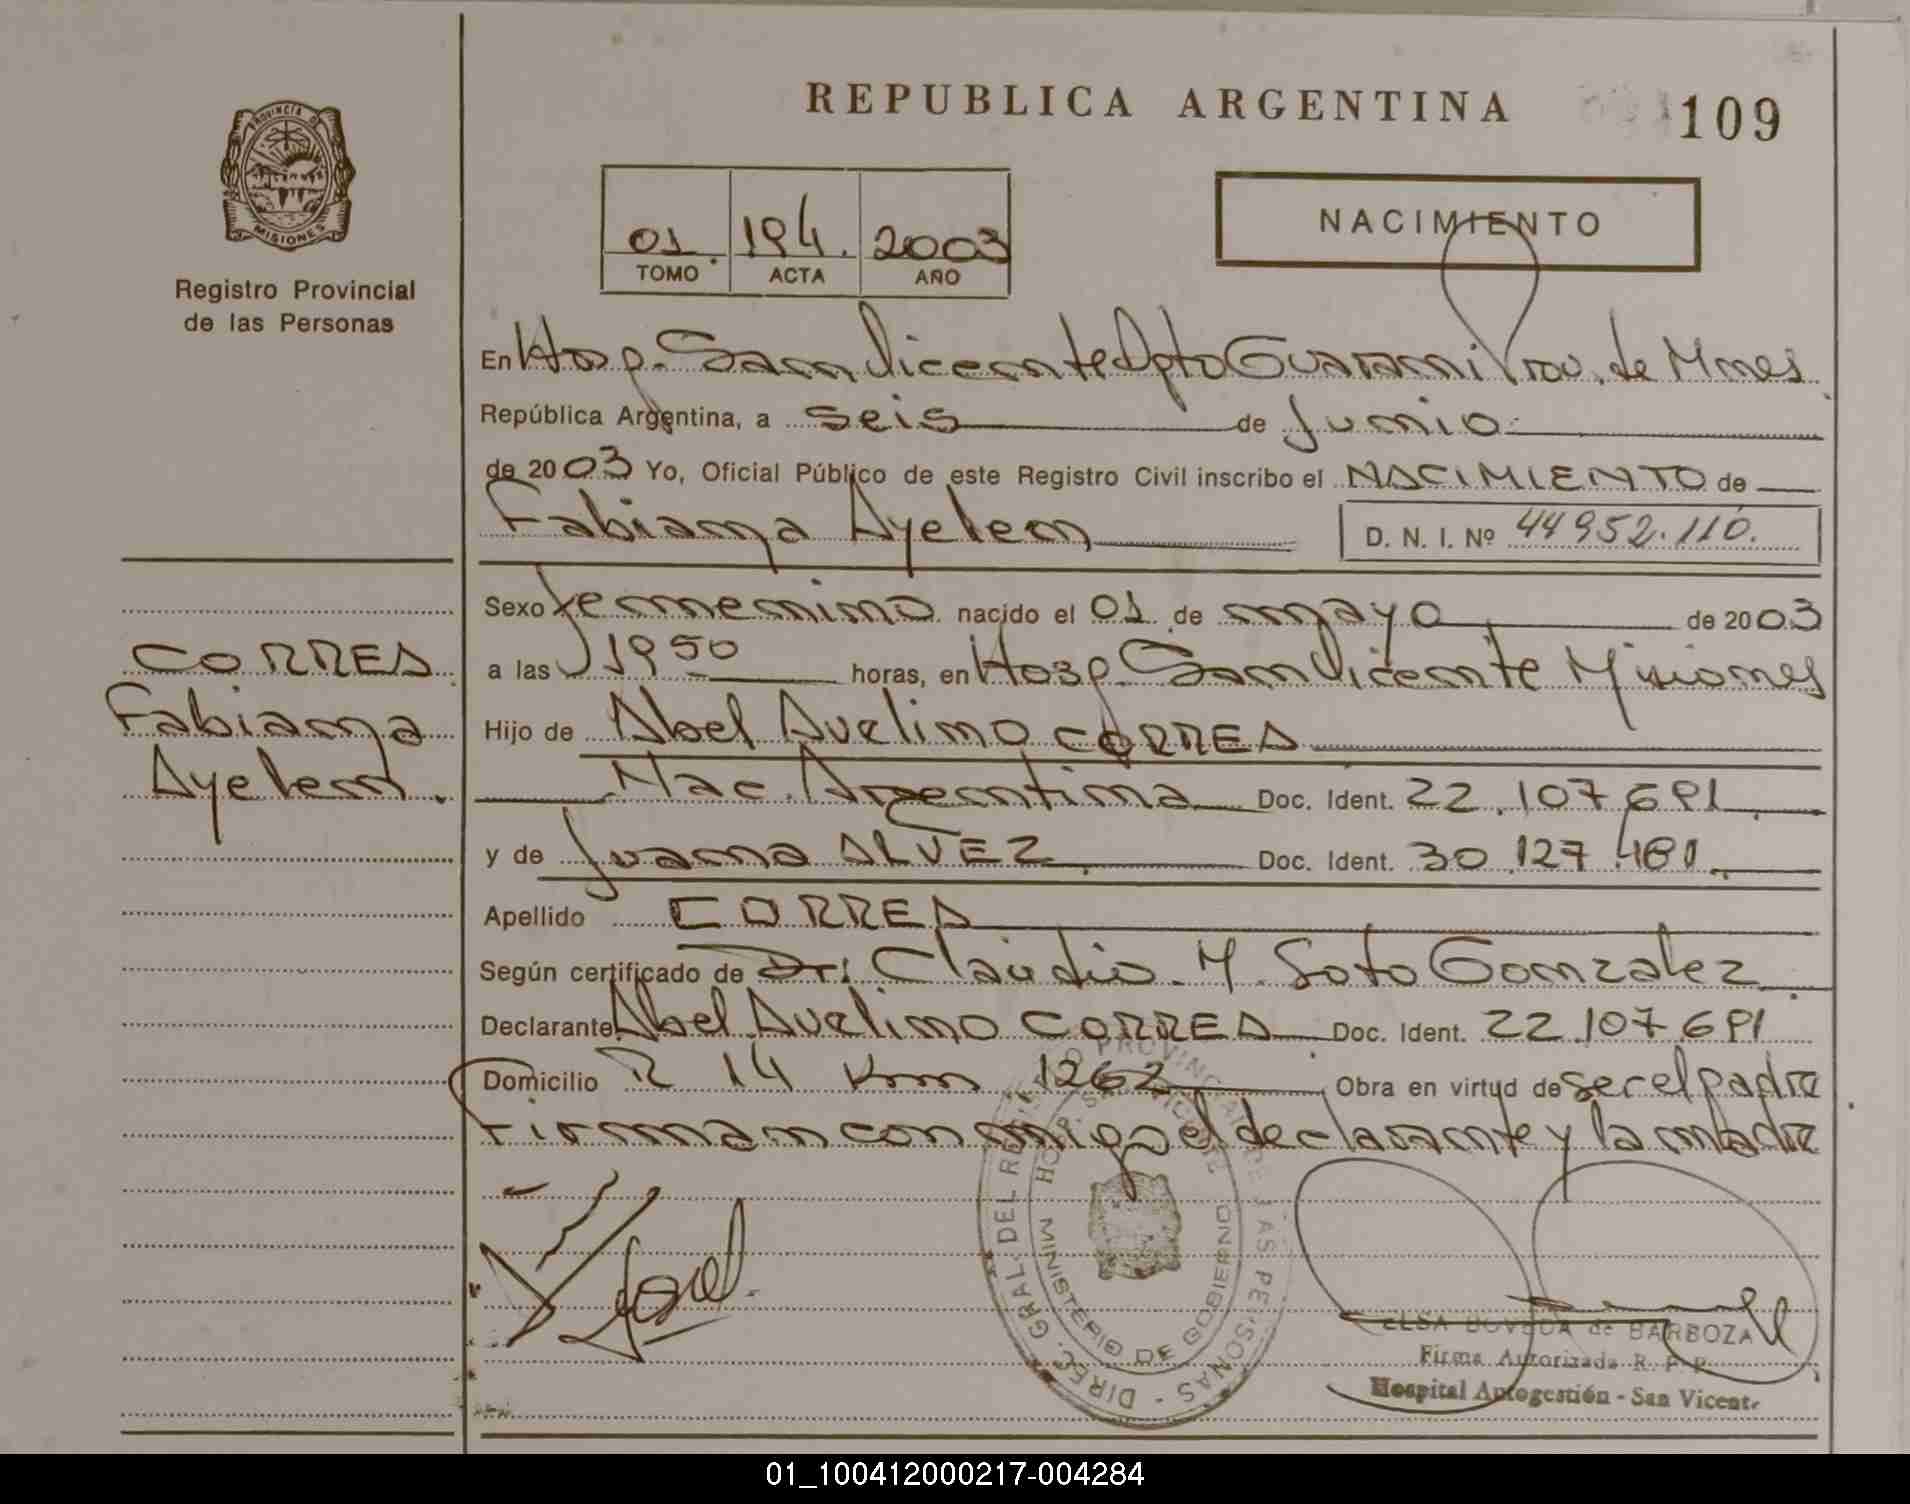 REPUBLICA ARGENTINA
109
PROVINCIA DE
MISIONES
Registro Provincial
de las Personas
01. 194. 2003
TOMO ACTA AÑO
NACIMIENTO
En Hosp. San Vicente Dpto Guarani Prov. de Mnes.
República Argentina, a seis de Junio
de 2003 Yo, Oficial Público de este Registro Civil inscribo el NACIMIENTO de
Fabiana Ayelen D. N. I. Nº 44952.110.
Sexo femenino nacido el 01 de mayo de 2003
a las 1950 horas, en Hosp. San Vicente Misiones
Hijo de Abel Avelino CORREA
Nac. Argentina Doc. Ident. 22.107.691
y de Juana ALVEZ Doc. Ident. 30.127.481
Apellido CORREA
Según certificado de Dr: Claudio M. Soto Gonzalez
Declarante Abel Avelino CORREA Doc. Ident. 22.107.691
Domicilio R 14 Km 1262 Obra en virtud de ser el padre
Firman conmigo el declarante y la madre
CORREA
Fabiana
Ayelen.
DIREC. GRAL. DEL REGISTRO PROVINCIAL DE LAS PERSONAS -
MINISTERIO DE GOBIERNO
ELSA de BARBOZA
Firma Autorizada R. P. P.
Hospital Autogestión - San Vicente
01_100412000217-004284